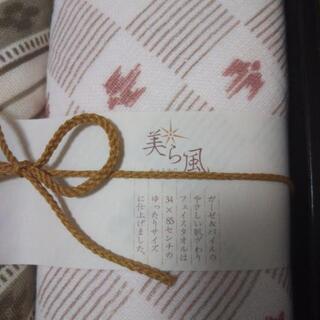 美ら風
ガーゼ&パイルの
やさしい肌ざわり
フェイスタオルは
34×85センチの
ゆったりサイズ
に仕上げました。